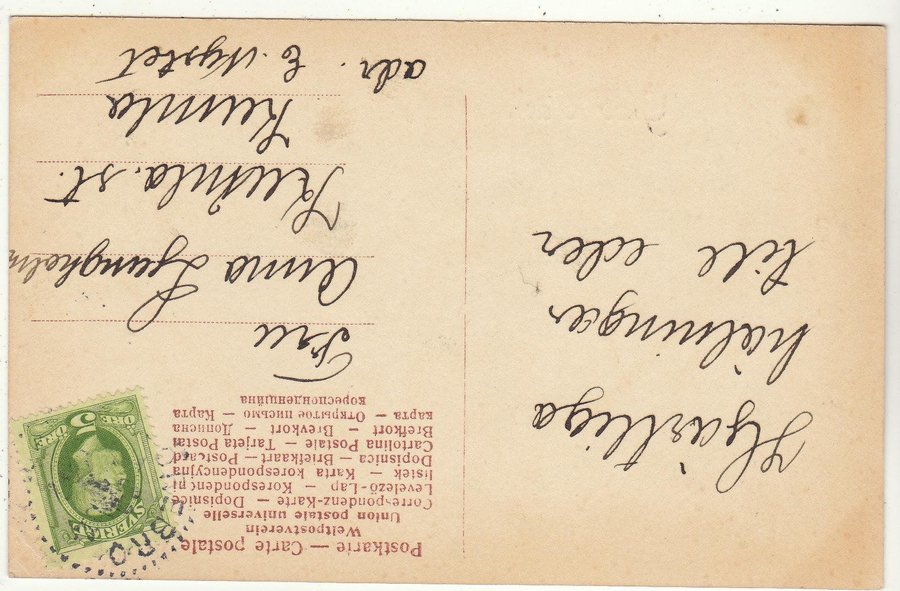 Postkarte — Carte postale
Weltpostverein
Union postale universelle
Correspondenz-Karte — Dopisnice
Levelező-Lap — Korespondent
listek — Karta korespondencyjna
Dopisnica — Briefkaart — Postcard
Cartolina Postale — Tarjeta Postal
Brefkort — Brevkort — Дописна
карта — Открытое письмо — Карта
кореспонденційна
5 ÖRE
ÖRE
SVERIGE
Hjärtliga
hälsningar
till eder
Fru
Anna Ljungholm
Kumla. st.
Kumla
adr. E. Nystet